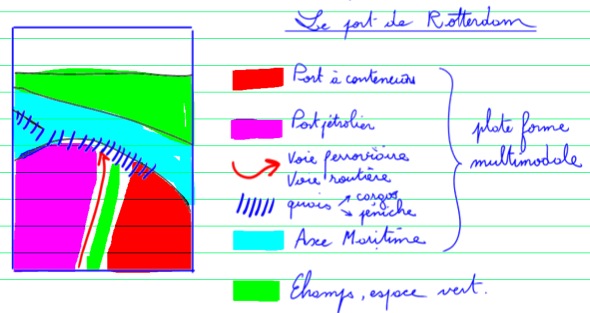 Le port de Rotterdam
Port à conteneurs
Port pétrolier
Voie ferroviaire
Voie routière
quais → cargos
→ péniche
Axe Maritime
plate forme
multimodale
Champs, espace vert.